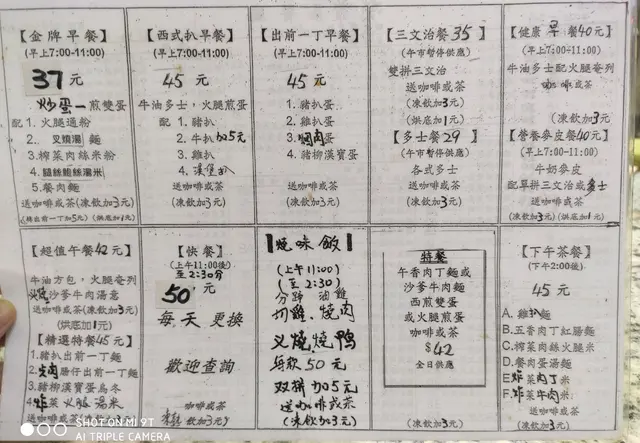 【金牌早餐】
(早上7:00-11:00)
37元
炒蛋一煎雙蛋
配 1. 火腿通粉
2. 叉燒湯麵
3. 榨菜肉絲米粉
4. 腿絲鮑絲湯米
5. 餐肉麵
送咖啡或茶(凍飲加3元)
(轉出前一丁加5元)(烘底加1元)
【西式扒早餐】
(早上7:00-11:00)
45元
牛油多士，火腿煎蛋
配 1. 豬扒
2. 牛扒加5元
3. 雞扒
4. 漢堡扒
送咖啡或茶
(凍飲加3元)
【出前一丁早餐】
(早上7:00-11:00)
45元
1. 豬扒蛋
2. 雞扒蛋
3. 焗肉蛋
4. 豬柳漢寶蛋
送咖啡或茶
(凍飲加3元)
【三文治餐35】
(午市暫停供應)
雙拼三文治
送咖啡或茶
(凍飲加3元)
(烘底加1元)
【多士餐29】
(午市暫停供應)
各式多士
送咖啡或茶
(凍飲加3元)
【健康早餐40元】
(早上7:00-11:00)
牛油多士配火腿奄列
咖啡或茶
(凍飲加3元)
【營養麥皮餐40元】
(早上7:00-11:00)
牛奶麥皮
配單拼三文治或多士
送咖啡或茶
(凍飲加3元)(烘底加1元)
【超值午餐42元】
牛油方包，火腿奄列
沙爹牛肉湯意
送咖啡或茶(凍飲加3元)
(烘底加1元)
【精選特餐45元】
1. 豬扒出前一丁麵
腸仔出前一丁麵
3. 豬柳漢寶蛋烏冬
4. 炸菜火腿湯米
送咖啡或茶
【快餐】
(上午11:00後)
至2:30分
50元
每天更換
歡迎查詢
咖啡或茶
飲加3元)
【燒味飯】
(上午11:00)
(至2:30)
油雞
切雞，燒肉
叉燒燒鴨
每款50元
双拼加5元
送咖啡或茶
(凍飲加3元)
特餐
午香肉丁麵或
沙爹牛肉麵
西煎雙蛋
或火腿煎蛋
咖啡或茶
$42
全日供應
(凍飲加3元)
【下午茶餐】
(下午2:00後)
45元
A. 雞扒麵
B. 五香肉丁紅腸麵
C. 榨菜肉絲火腿米
D. 餐肉蛋湯麵
E. 炸菜肉丁米
F. 炸菜牛肉米
送咖啡或茶
(凍飲加3元)
SHOT ON MI 9T
AI TRIPLE CAMERA